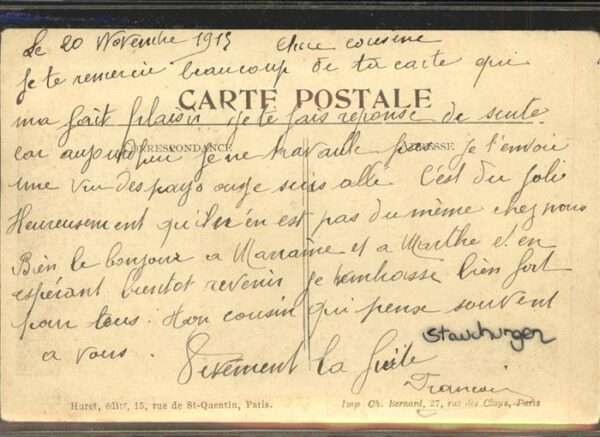 Le 20 Novembre 1915 Chere cousine
Je te remercie beaucoup de ta carte qui
CARTE POSTALE
ma fait plaisir je te fais reponse de suite
CORRESPONDANCE ADRESSE
car aujourd'hui je ne travaille pas je t'envoie
une vue des pays ou je suis allé. C'est du joli
Heureusement qu'il n'en est pas du même chez nous
Bien le bonjour a Marraine et a Marthe et en
espérant bientot revenir je t'embrasse bien fort
pour tous. Ton cousin qui pense souvent
a vous.
Stauchungen
Vivement la fuite
Francois
Huret, édit', 15, rue de St-Quentin, Paris. Imp Ch. Bernard, 27, rue des Cloys, Paris